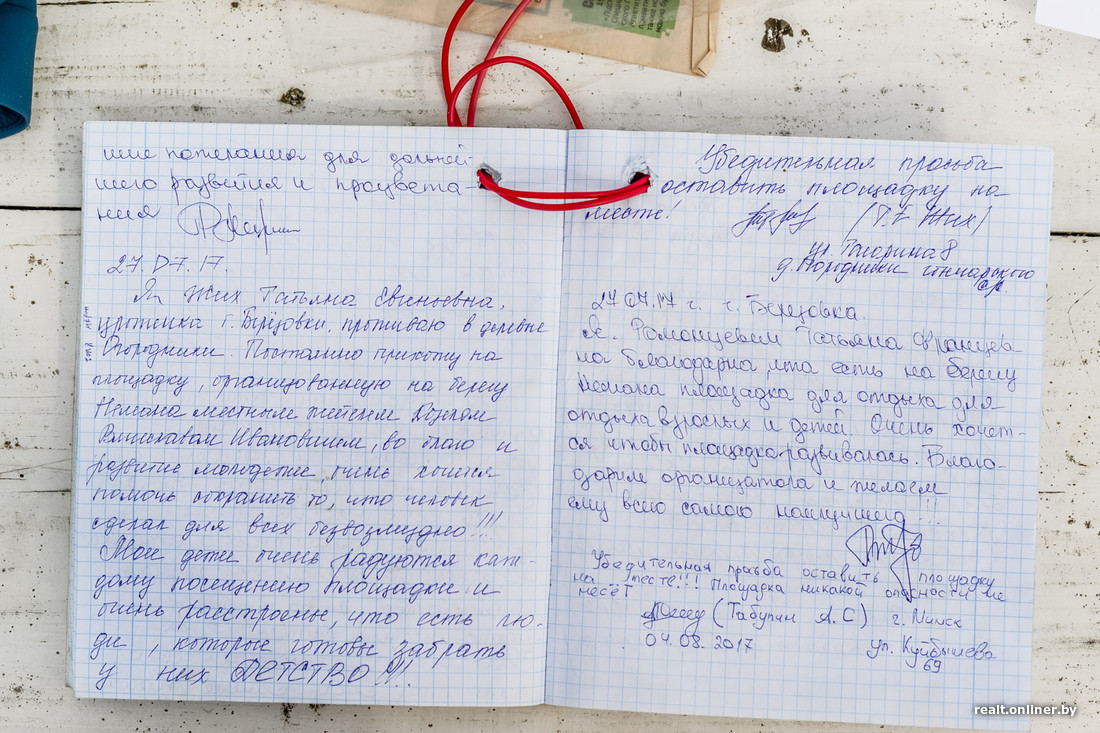 шие пожелания для дальней-
шего развития и процвета-
ния
27.07.17.
Я, Жих Татьяна Евгеньевна,
уроженка г. Берёзовки, проживаю в деревне
Огородники. Постоянно прихожу на
площадку, организованную на берегу
Немана местным жителем
Ивановичем, во благо и
развитие молодежи, очень хочется
помочь сохранить то, что человек
сделал для всех безвозмездно!!!
Мои дети очень радуются каж-
дому посещению площадки и
очень расстроены, что есть лю-
ди, которые готовы забрать
у них ДЕТСТВО!!!.
Убедительная просьба
оставить площадку на
месте! (Т.Е Жих)
ул Гагарина 8
д. Огородники
27.07.17 г. г. Берёзовка.
Я, Романцевич Татьяна Францев-
на благодарна, что есть на берегу
Немана площадка для отдыха для
отдыха взрослых и детей. Очень хочет-
ся чтобы площадка развивалась. Благо-
дарим организатора и желаем
ему всего самого наилучшего!!!
Убедительная прозьба оставить площадку
на месте!!! Площадка никакой опасности не
несёт
(Табупин А.С) г. Минск
04.08.2017 ул. Куйбышева
69
realt.onliner.by